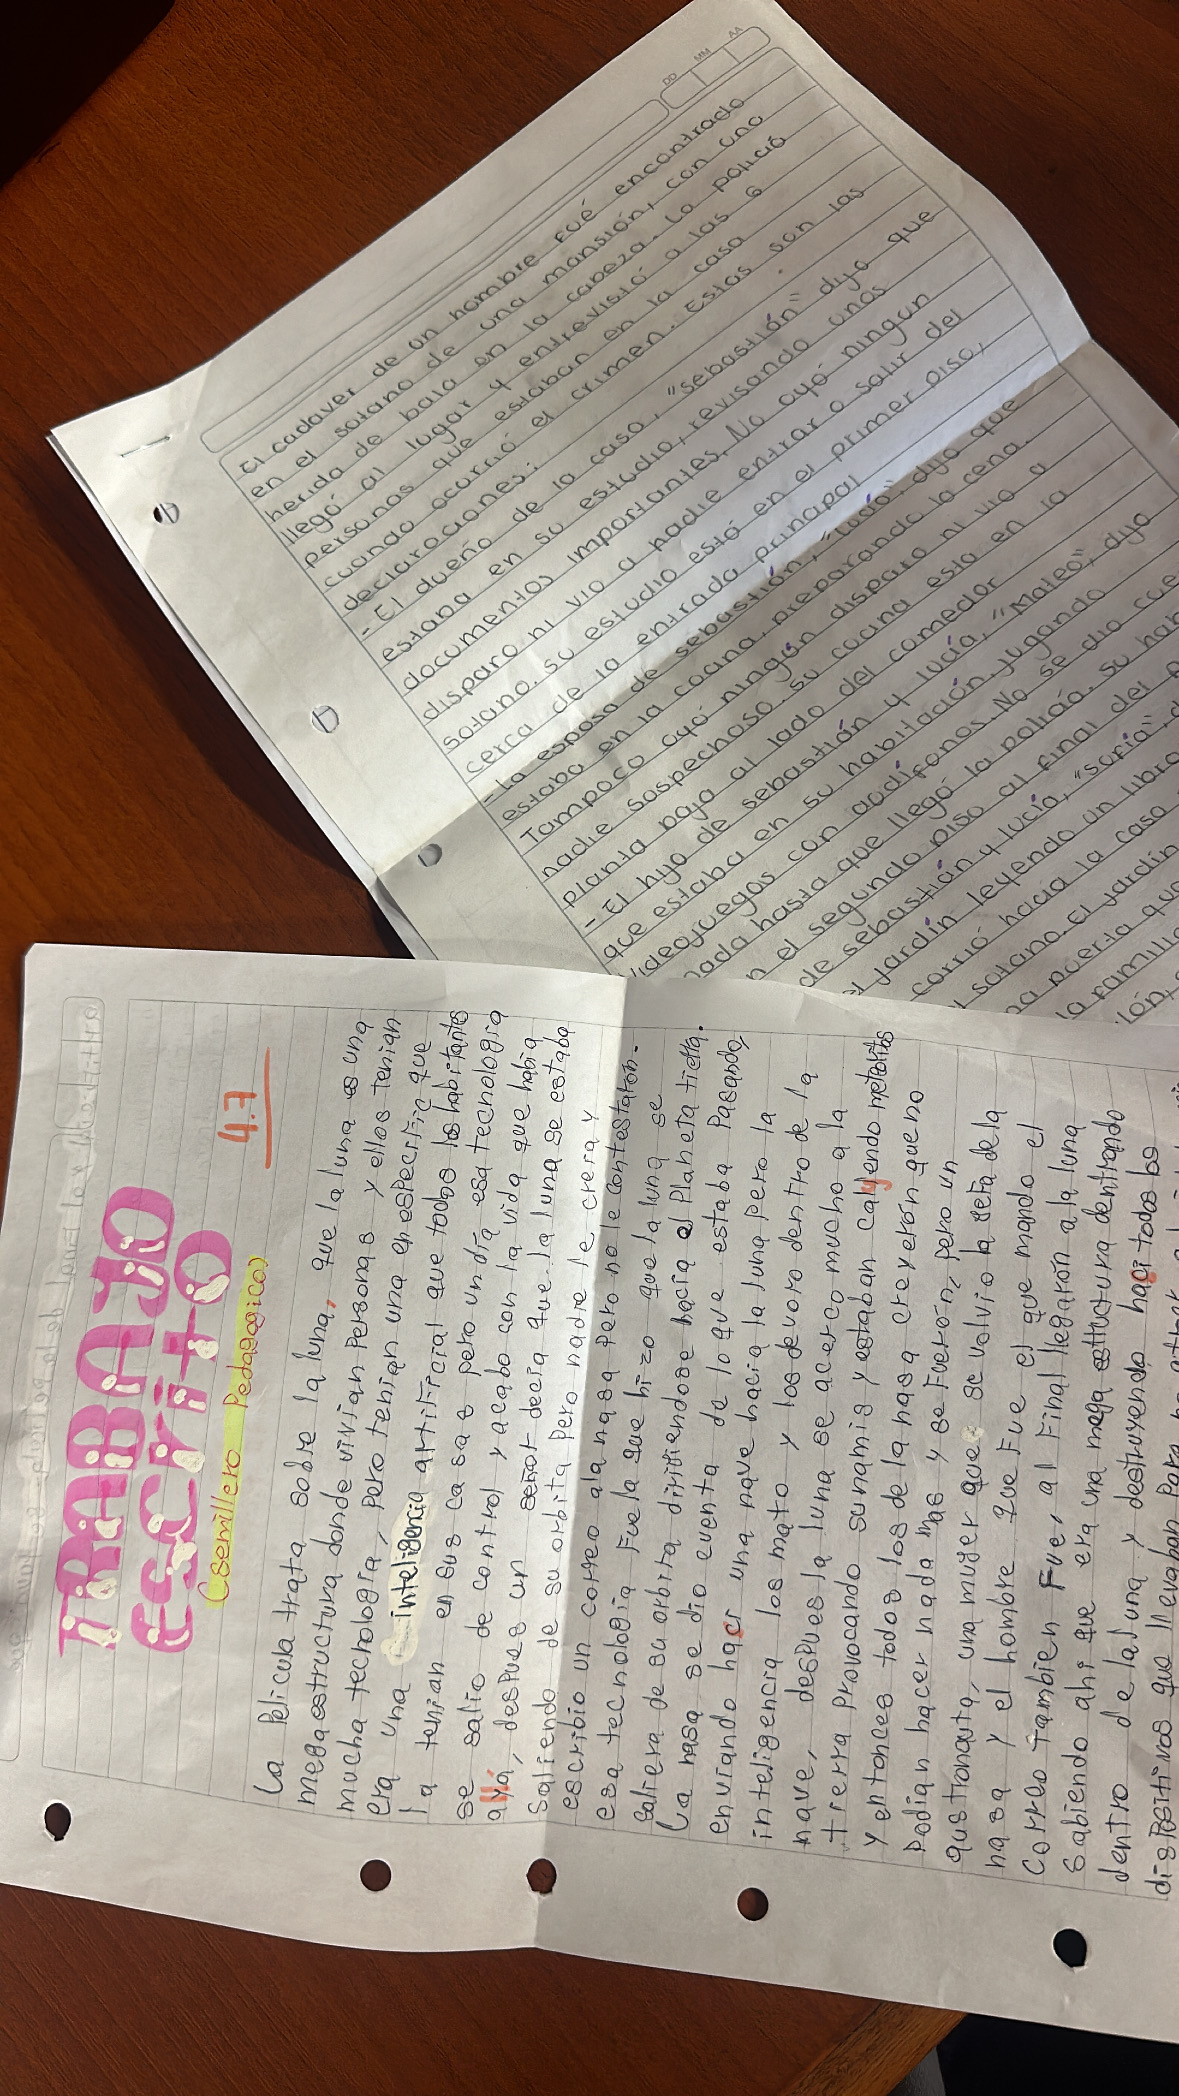 TRABAJO
ESCRITO
(semillero Pedagogico)
4.7
La Pelicula trata sobre la luna, que la luna es una
megaestructura donde vivian Personas y ellos tenian
mucha tecnologia, Pero tenian una en especifiC que
era una inteligencia artificial que todos los habitantes
la tenian en sus casas pero un dia esa tecnologia
se salio de control y acabo con la vida que habia
allá, despues un señor decia que la luna se estaba
Saliendo de su orbita Pero nadie le creia y
escribio un correo a la nasa Pero no le contestaron.
esa tecnologia Fue la que hizo que la luna se
saliera de su orbita dirifiendose hacia el Planeta tierra.
La nasa se dio cuenta de lo que estaba Pasando,
enviando hacer una nave hacia la luna pero la
inteligencia los mato y los devoro dentro de la
nave, despues la luna se acerco mucho a la
tierra Provocando sunamis y estaban callendo meteoritos
y entonces todos los de la nasa creyeron que no
Podian hacer nada mas y se Fueron, Pero un
austronauta, una mujer que se volvio la gefa de la
nasa y el hombre que Fue el que mando el
Correo tambien Fue, al Final llegaron a la luna
Sabiendo ahi que era una mega estructura dentrando
dentro de la luna y destruyendo haci todos los
disPositivos que llevaban Para
DD MM AA
El cadaver de un hombre fué encontrado
en el sotano de una mansión, con una
herida de bala en la cabeza. La policía
llegó al lugar y entrevistó a las 6
personas que estaban en la casa
cuando ocurrió el crimen. Estas son las
declaraciones:
- El dueño de la casa, "sebastián" dijo que
estaba en su estudio, revisando unos
documentos importantes. No oyó ningun
disparo ni vio a nadie entrar o salir del
sotano. su estudio está en el primer piso,
cerca de la entrada principal
- la esposa de sebastián, "Lucía", dijo que
estaba en la cocina, preparando la cena.
Tampoco oyó ningún disparo ni vio a
nadie sospechoso. su cocina esta en la
planta baja al lado del comedor
- El hijo de sebastián y lucía, "Mateo", dijo
que estaba en su habitación, jugando
videojuegos con audífonos. No se dio cue
nada hasta que llegó la policía. su hab
n el segundo piso al final del p
de sebastián y lucía, "sofía", d
el jardín leyendo un libro
corrió hacia la casa
l sotano. El jardín
na puerta que
la famili